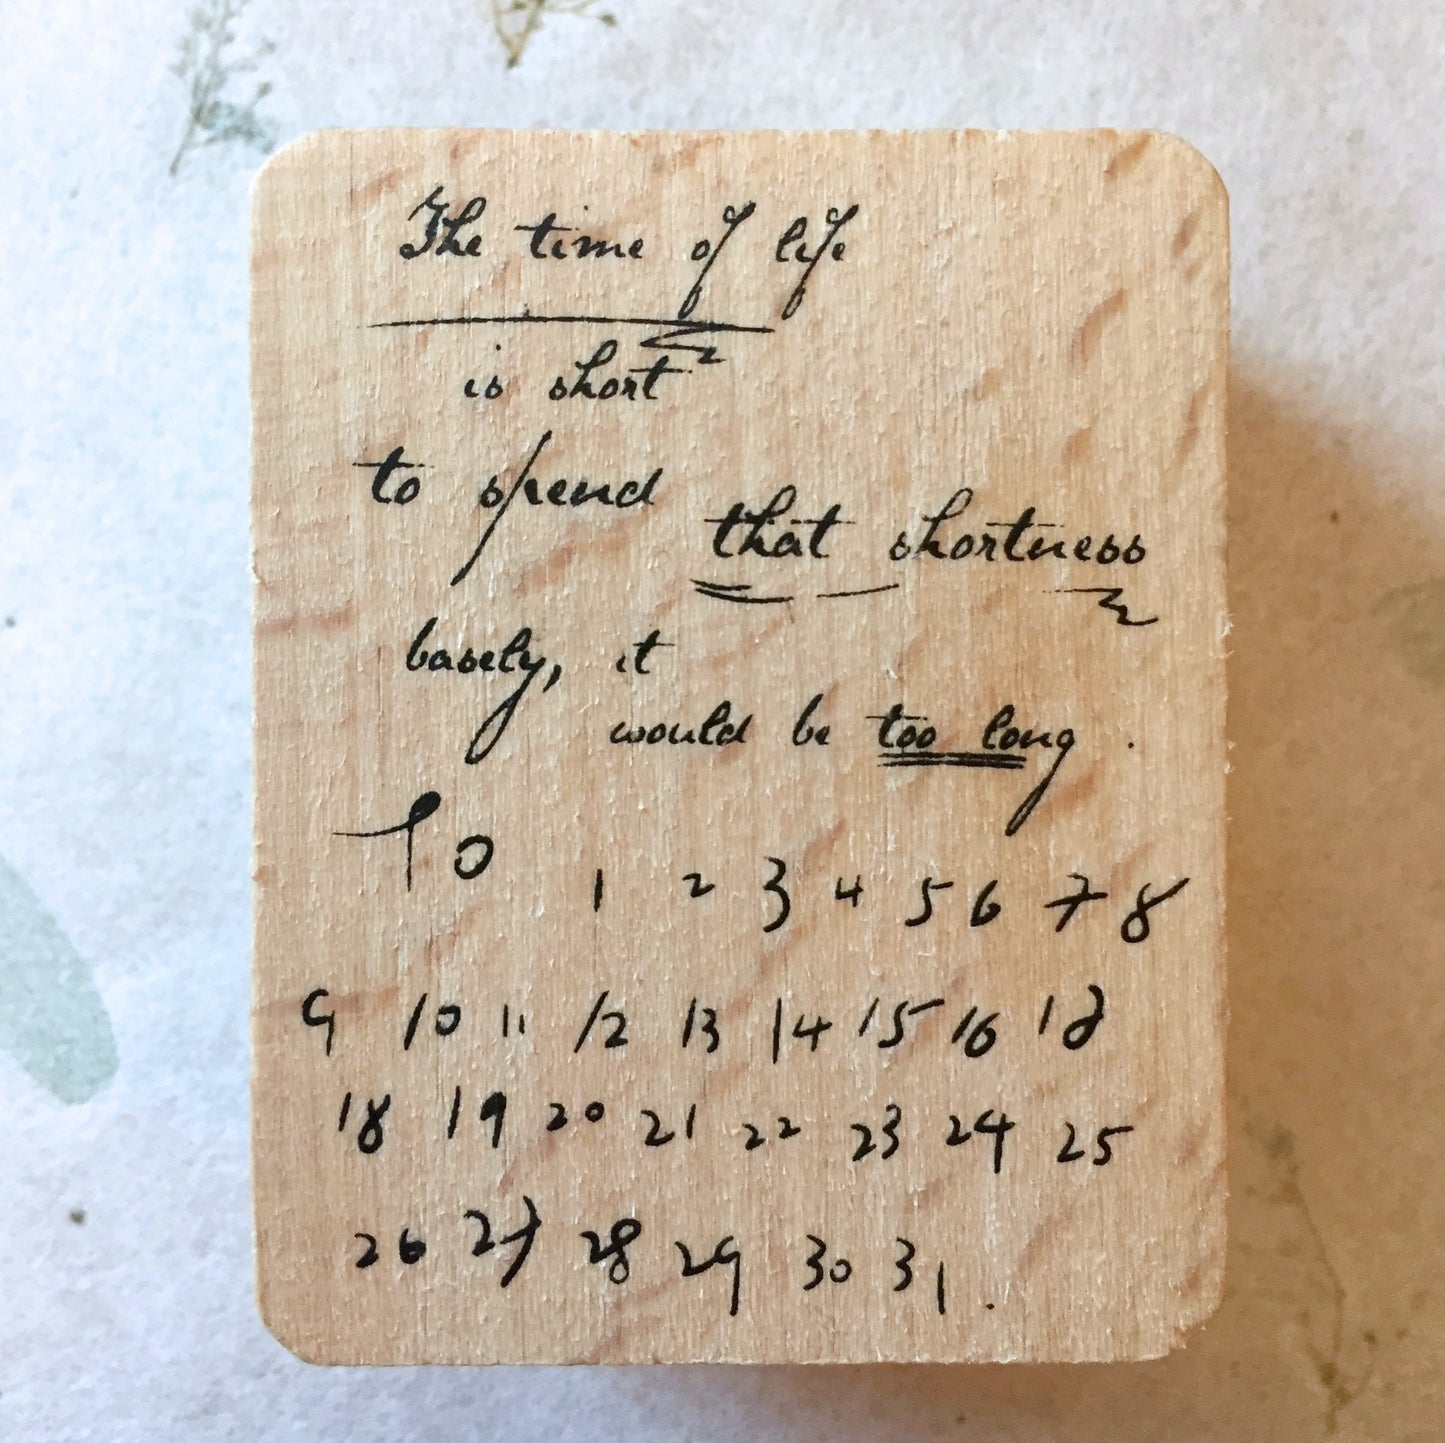 The time of life
is short
to spend that shortness
basely, it
would be too long.
To 1 2 3 4 5 6 7 8
9 10 11 12 13 14 15 16 18
18 19 20 21 22 23 24 25
26 27 28 29 30 31.